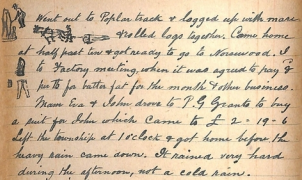 Went out to Poplar track & logged up with mare
& rolled logs together. Came home
at half past ten & got ready to go to Norsewood. I
to Factory meeting, when it was agreed to pay 8
per lb for butter fat for the month & other business.
Mam Eva & John drove to P. G. Grants to buy
a suit for John which came to £ 2-19-6
Left the township at 1 o'clock & got home before the
heavy rain came down. It rained very hard
during the afternoon, not a cold rain.